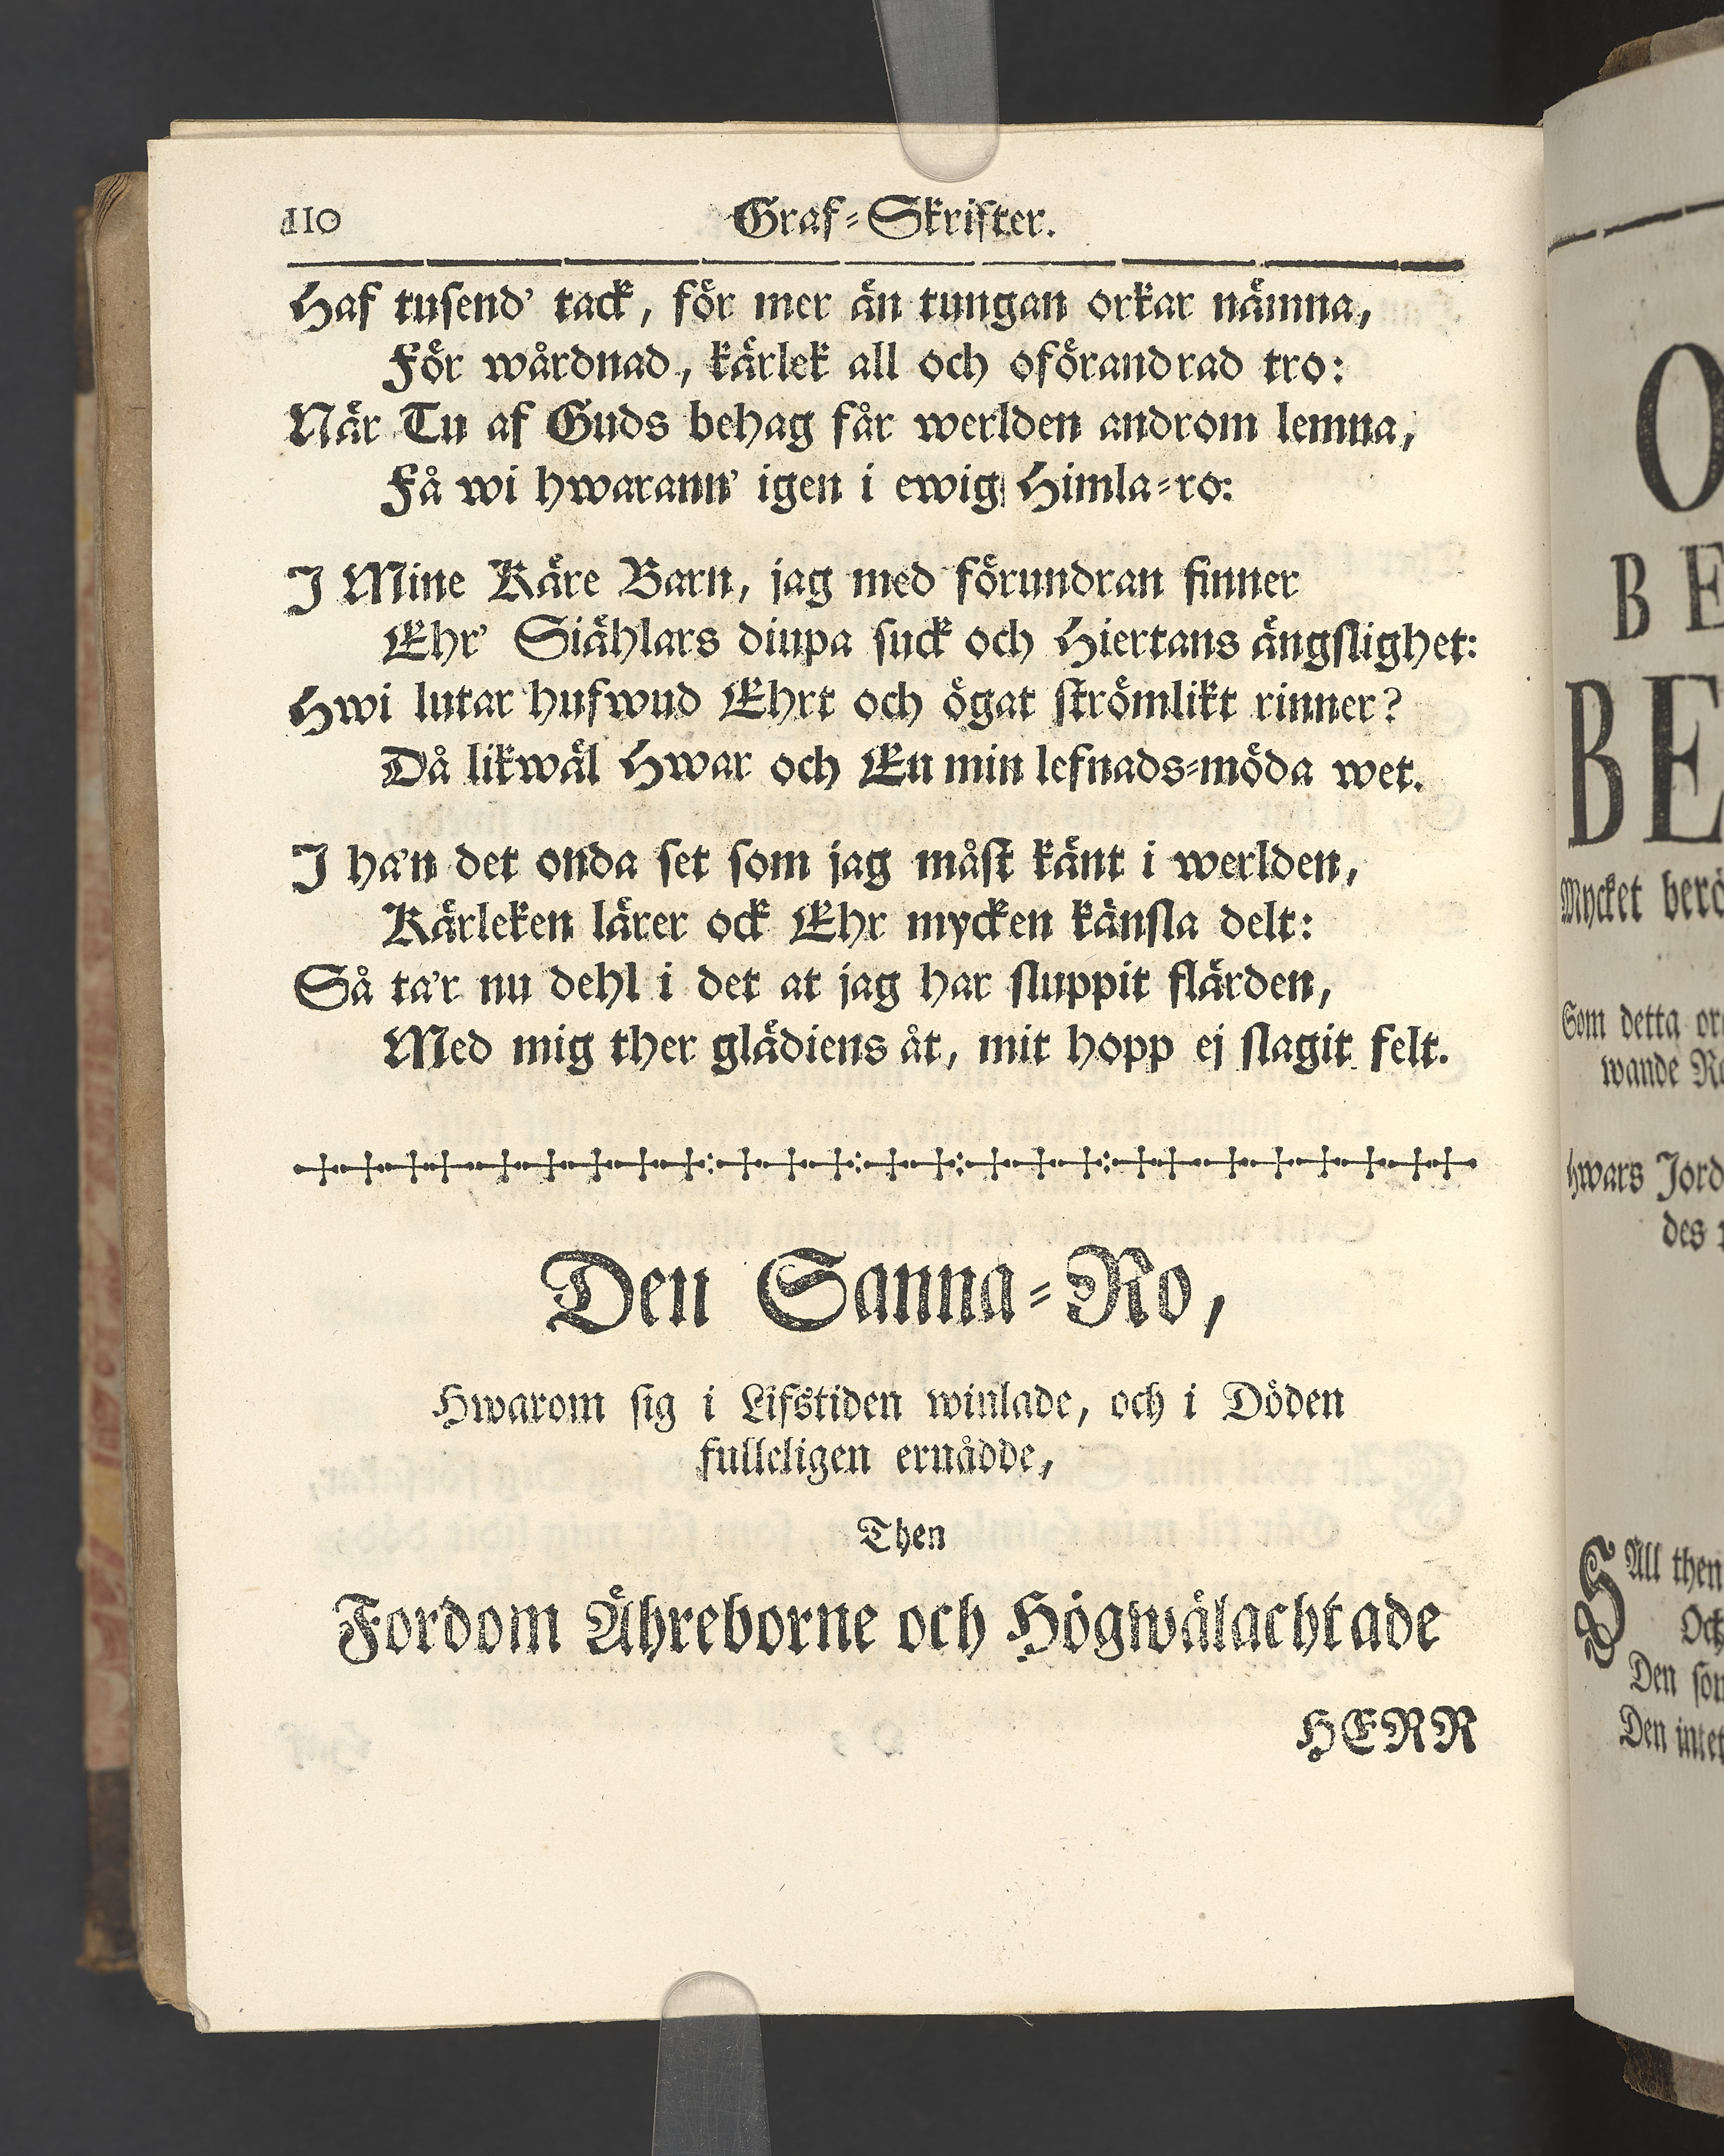 110 Graf-Skrifter.
Haf tusend' tack, för mer än tungan orkar nämna,
För wårdnad, kärlek all och oförandrad tro:
När Tu af Guds behag får werlden androm lemna,
Få wi hwarann' igen i ewig Himla-ro:
I Mine Käre Barn, jag med förundran finner
Ehr' Siählars diupa suck och Hiertans ängslighet:
Hwi lutar hufwud Ehrt och ögat strömlikt rinner?
Då likwäl Hwar och En min lefnads-möda wet.
I ha'n det onda set som jag måst känt i werlden,
Kärleken lärer ock Ehr mycken känsla delt:
Så ta'r nu dehl i det at jag har sluppit flärden,
Med mig ther glädiens åt, mit hopp ej slagit felt.
Den Sanna-Ro,
Hwarom sig i Lifstiden winlade, och i Döden
fulleligen ernådde,
Then
Fordom Ähreborne och Högwälachtade
HERR
O
BE
BE
Mycket
Som detta
wande
hwars
des
SAll then
Och
Den
Den intet